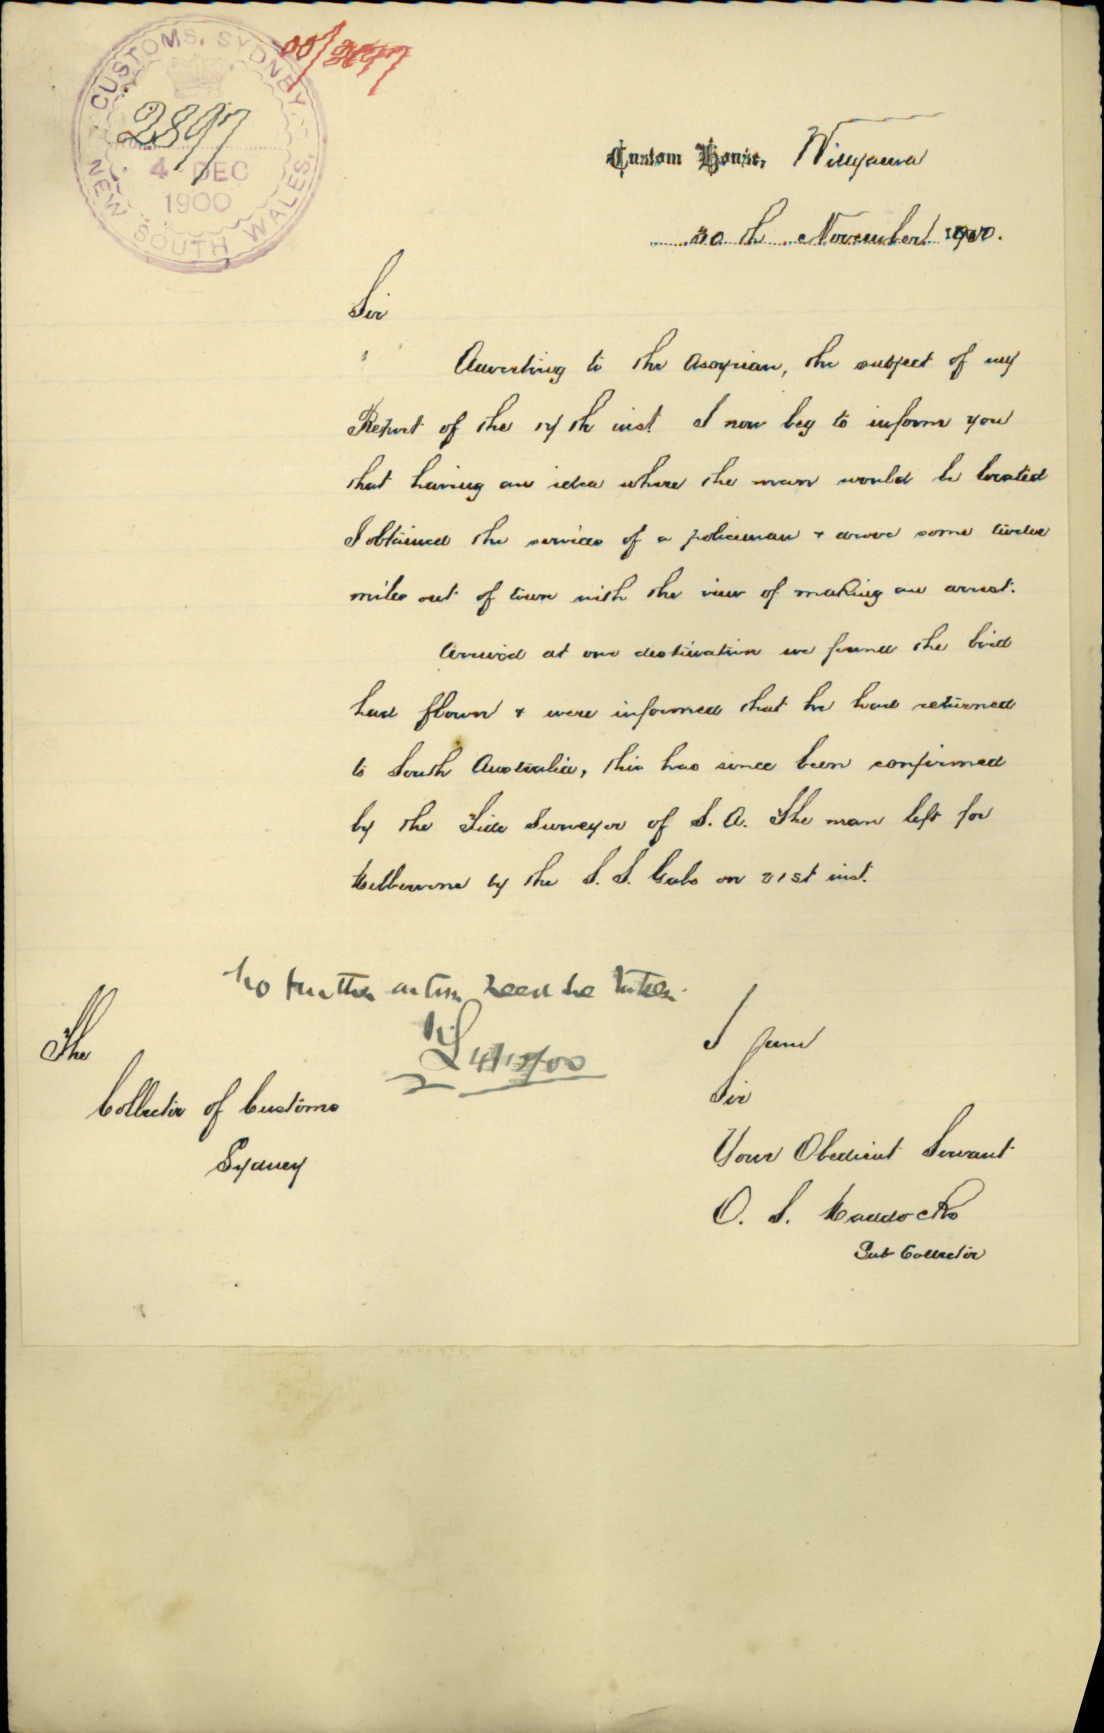 CUSTOMS, SYDNEY
2897
4 DEC
1900
NEW SOUTH WALES.
00/2897
Custom House, Willyama
30th November 1900.
Sir
Adverting to the Assyrian, the subject of my
Report of the 17th inst I now beg to inform you
that having an idea where the man would be located
I obtained the services of a policeman & drove some twelve
miles out of town with the view of making an arrest.
Arrived at our destination we found the bird
had flown & were informed that he had returned
to South Australia, this has since been confirmed
by the Tide Surveyor of S. A. The man left for
Melbourne by the S. S. Gabo on 21st inst.
No further action need be taken.
4/12/00
I am
Sir
Your Obedient Servant
O. S. Maddocks
Sub Collector
The
Collector of Customs
Sydney